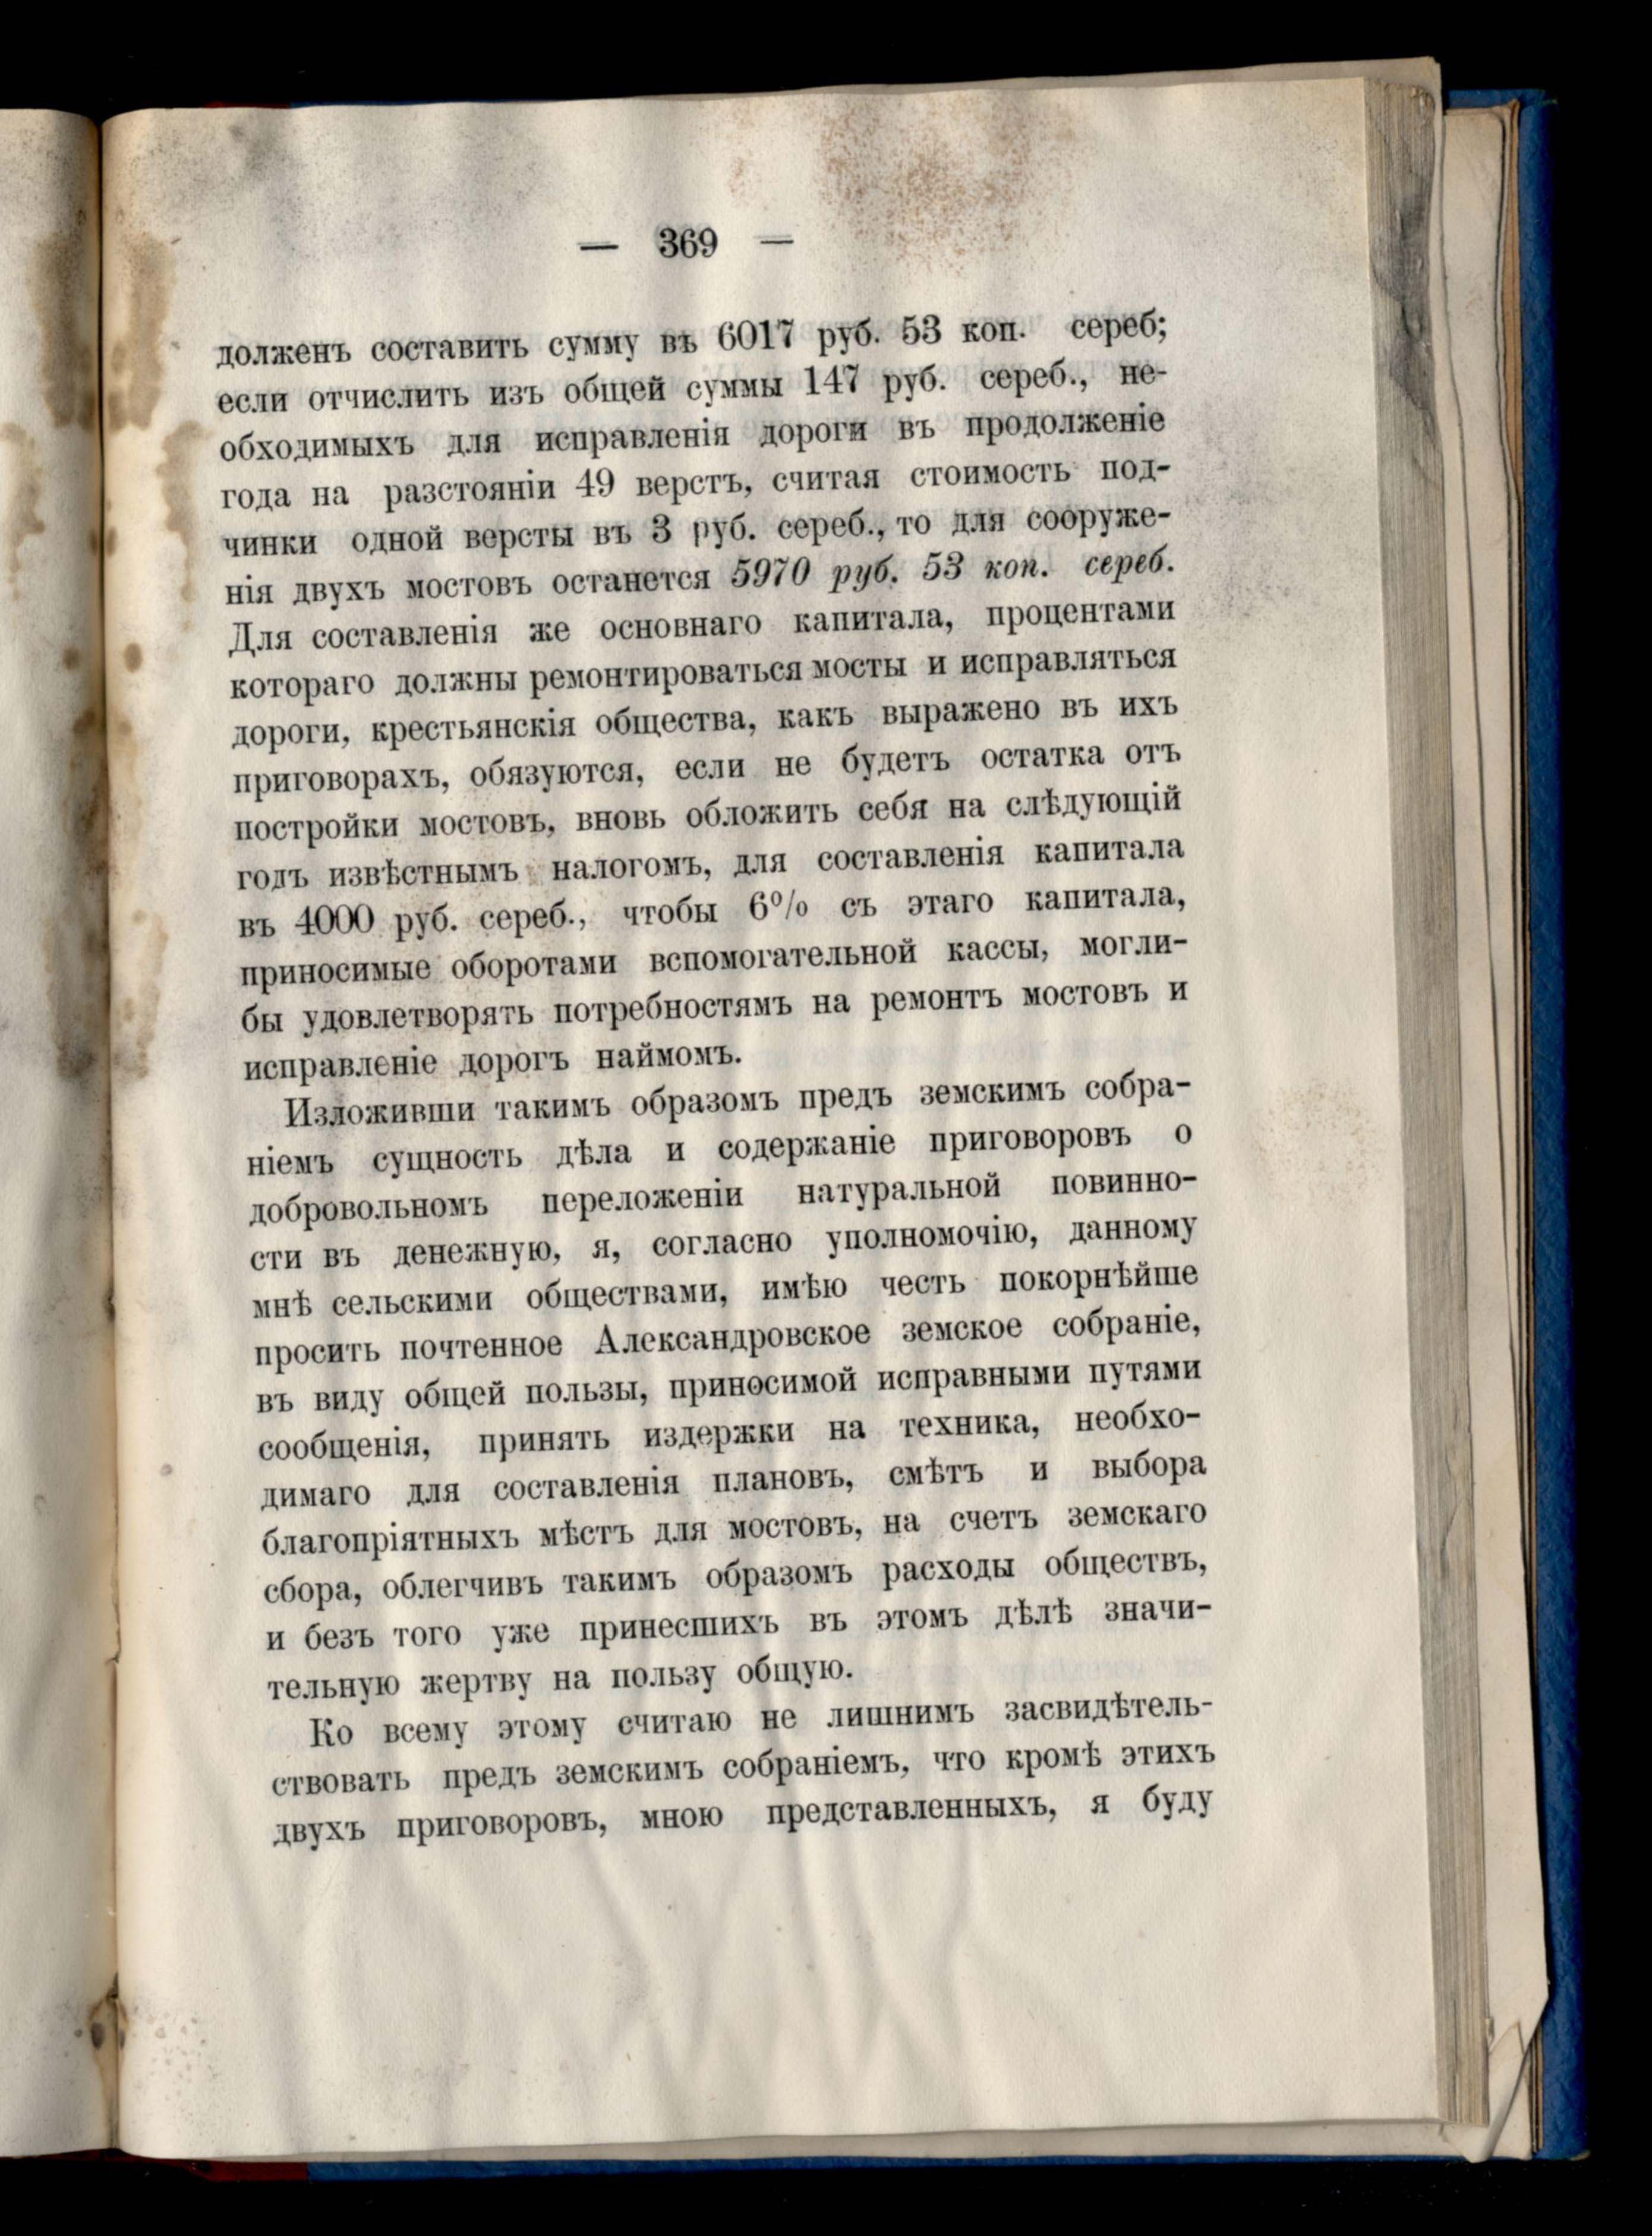 — 369 —
долженъ составить сумму въ 6017 руб. 53 коп. сереб;
если отчислить изъ общей суммы 147 руб. сереб., не-
обходимыхъ для исправленія дороги въ продолженіе
года на разстояніи 49 верстъ, считая стоимость под-
чинки одной версты въ 3 руб. сереб., то для сооруже-
нія двухъ мостовъ останется 5970 руб. 53 коп. сереб.
Для составленія же основнаго капитала, процентами
котораго должны ремонтироваться мосты и исправляться
дороги, крестьянскія общества, какъ выражено въ ихъ
приговорахъ, обязуются, если не будетъ остатка отъ
постройки мостовъ, вновь обложить себя на слѣдующій
годъ извѣстнымъ налогомъ, для составленія капитала
въ 4000 руб. сереб., чтобы 6% съ этаго капитала,
приносимые оборотами вспомогательной кассы, могли-
бы удовлетворять потребностямъ на ремонтъ мостовъ и
исправленіе дорогъ наймомъ.
Изложивши такимъ образомъ предъ земскимъ собра-
ніемъ сущность дѣла и содержаніе приговоровъ о
добровольномъ переложеніи натуральной повинно-
сти въ денежную, я, согласно уполномочію, данному
мнѣ сельскими обществами, имѣю честь покорнѣйше
просить почтенное Александровское земское собраніе,
въ виду общей пользы, приносимой исправными путями
сообщенія, принять издержки на техника, необхо-
димаго для составленія плановъ, смѣтъ и выбора
благопріятныхъ мѣстъ для мостовъ, на счетъ земскаго
сбора, облегчивъ такимъ образомъ расходы обществъ,
и безъ того уже принесшихъ въ этомъ дѣлѣ значи-
тельную жертву на пользу общую.
Ко всему этому считаю не лишнимъ засвидѣтель-
ствовать предъ земскимъ собраніемъ, что кромѣ этихъ
двухъ приговоровъ, мною представленныхъ, я буду